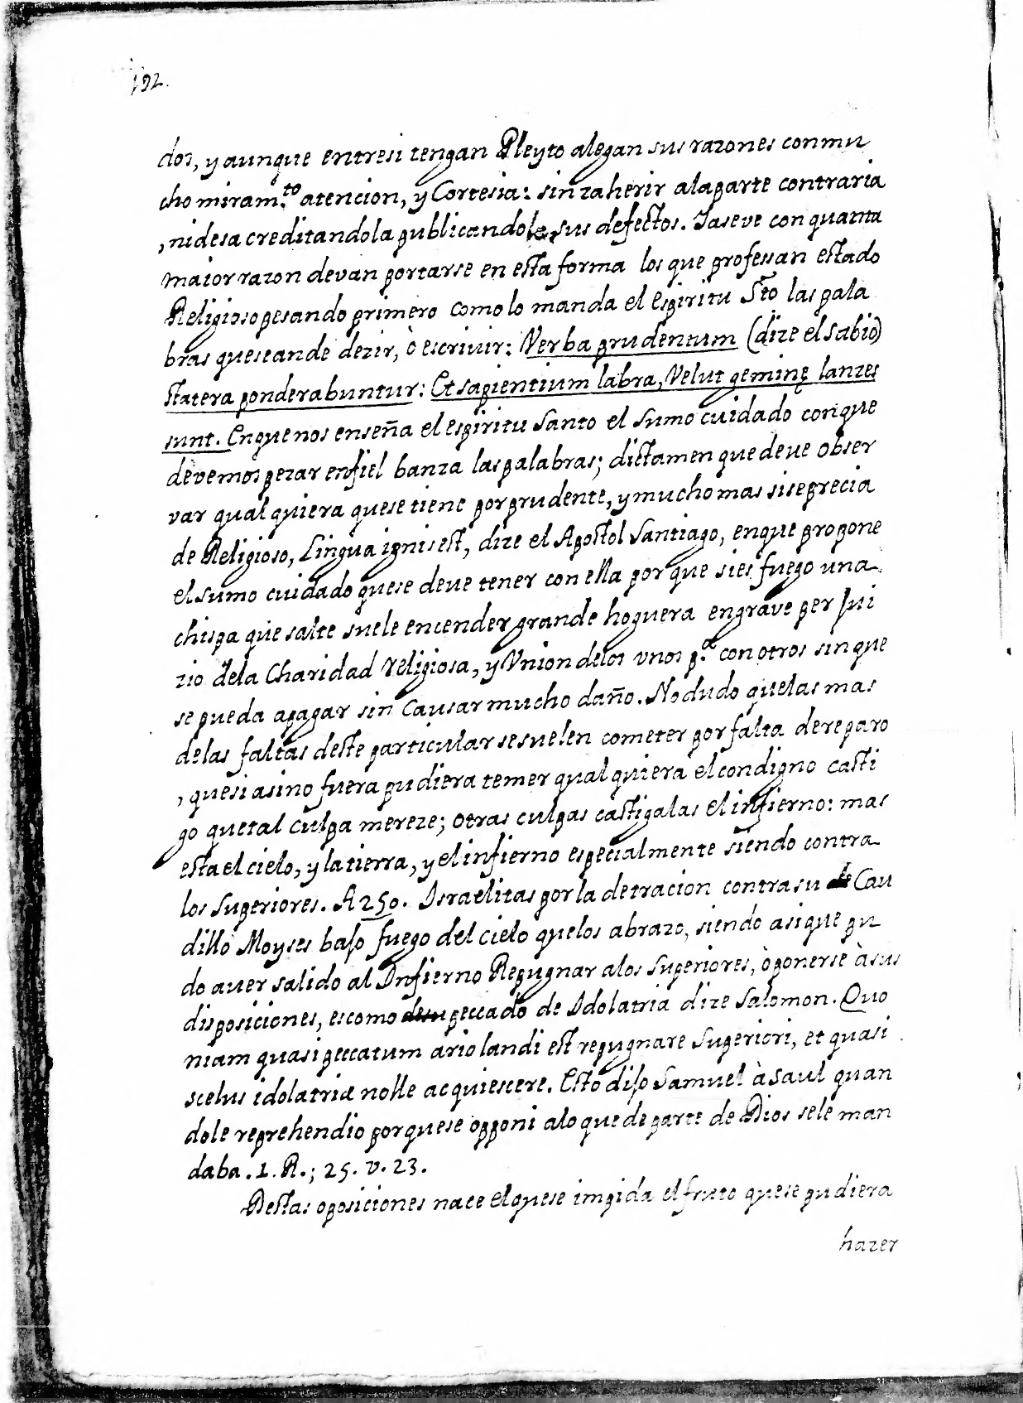 192.
dos, y aunque entresi tengan Pleyto alegan sus razones conmu
cho miram.to atencion, y Cortesia: sin zaherir alaparte contraria
, nidesacreditandola publicandole sus defectos. Yaseve con quanta
maior razon devan portarse en esta forma los que professan estado
Religioso pesando primero como lo manda el Espiritu Sto las pala
bras queseande dezir, ò escrivir: Verba prudentium (dize el sabio)
statera ponderabuntur: Et sapientium labra, Velut geminę lanzes
sunt. Enque nos enseña el espiritu Santo el sumo cuidado conque
devemos pezar enfiel banza las palabras; dictamen que deve obser
var qual quiera quese tiene por prudente, y mucho mas sise precia
de Religioso, Lingua ignis est, dize el Apostol Santiago, enque propone
el sumo cuidado quese deve tener con ella por que sies fuego una
chispa que salte suele encender grande hoguera engrave per jui
zio dela Charidad religiosa, y Vnion delos unos p.a con otros sin que
se pueda apagar sin causar mucho daño. No dudo quelas mas
delas faltas deste particular sesuelen cometer por falta de reparo
, que si asi no fuera pudiera temer qual quiera el condigno casti
go que tal culpa mereze; otras culpas castigalas el infierno: mas
esta el cielo, y la tierra, y el infierno especialmente siendo contra
los Superiores. A 250. Israelitas por la detracion contra su Cau
dillo Moyses bajo fuego del cielo quelos abrazo, siendo asi que pu
do aver salido al Infierno Repugnar alos Superiores, ò ponerse à sus
disposiciones, es como peccado de Idolatria dize Salomon. Quo
niam quasi peccatum ariolandi est repugnare Superiori, et quasi
scelus idolatriæ nolle acquiescere. Esto dijo Samuel à Saul quan
dole reprehendio porquese opponi alo que de parte de Dios sele man
daba. 1. R.; 25. v. 23.
Destas oposiciones nace el quese impida el fruto quese pudiera
hazer